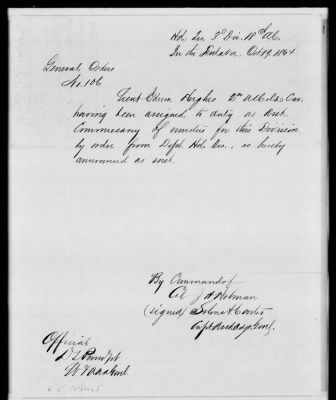 Hd Qrs 3d Div. 18th A.C.
In the Field Va. Oct 19, 1864
General Orders
No. 106
Lieut Edwin Hughes 2nd U.S. Col. Cav.
having been assigned to duty as Asst.
Commissary of musters for this Division
by order from Dept. Hd Qrs., is hereby
announced as such.
By Command of
Col J H Holman
(signed) Solon A Carter
Capt &
Official